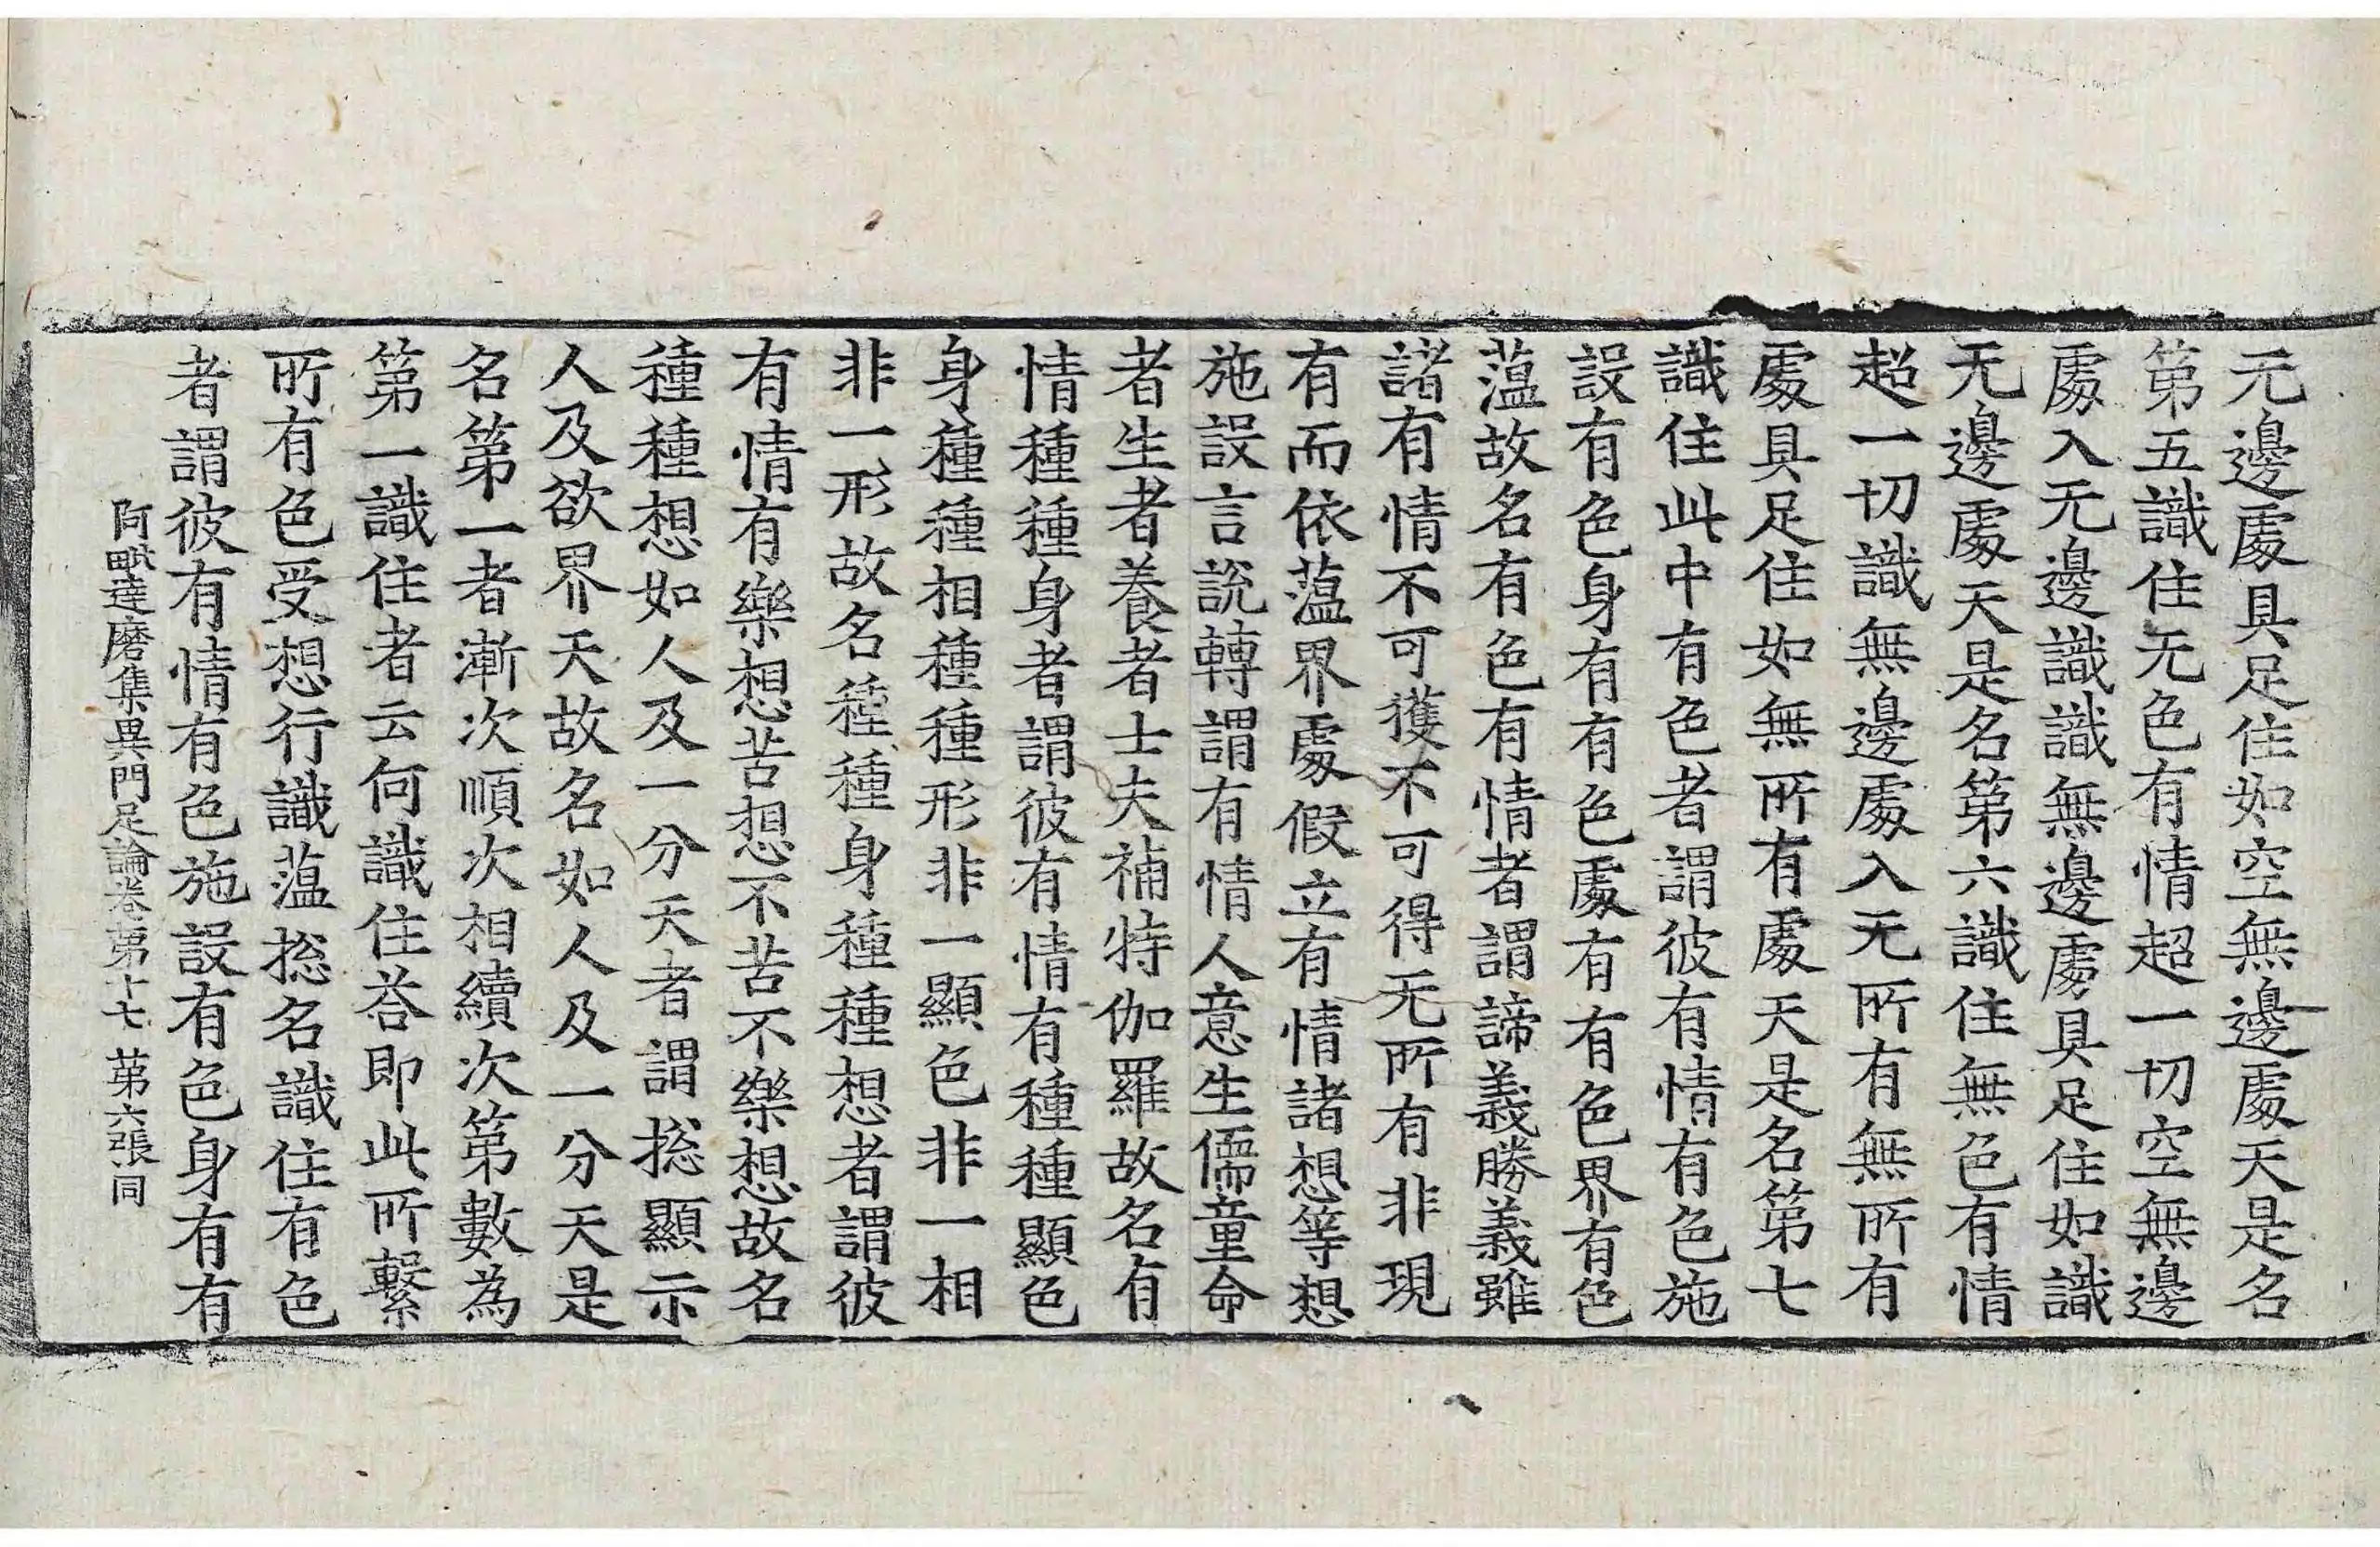 无邊處具足住如空無邊處天是名
第五識住无色有情超一切空無邊
處入无邊識識無邊處具足住如識
无邊處天是名第六識住無色有情
超一切識無邊處入无所有無所有
處具足住如無所有處天是名第七
識住此中有色者謂彼有情有色施
設有色身有有色處有有色界有色
薀故名有色有情者謂諦義勝義雖
諸有情不可獲不可得无所有非現
有而依薀界處假立有情諸想等想
施設言說轉謂有情人意生儒童命
者生者養者士夫補特伽羅故名有
情種種身者謂彼有情有種種顯色
身種種相種種形非一顯色非一相
非一形故名種種身種種想者謂彼
有情有樂想苦想不苦不樂想故名
種種想如人及一分天者謂捴顯示
人及欲界天故名如人及一分天是
名第一者漸次順次相續次第數為
第一識住者云何識住荅即此所繫
所有色受想行識薀捴名識住有色
者謂彼有情有色施設有色身有有
阿毗達磨集異門足論卷第十七 第六張 同